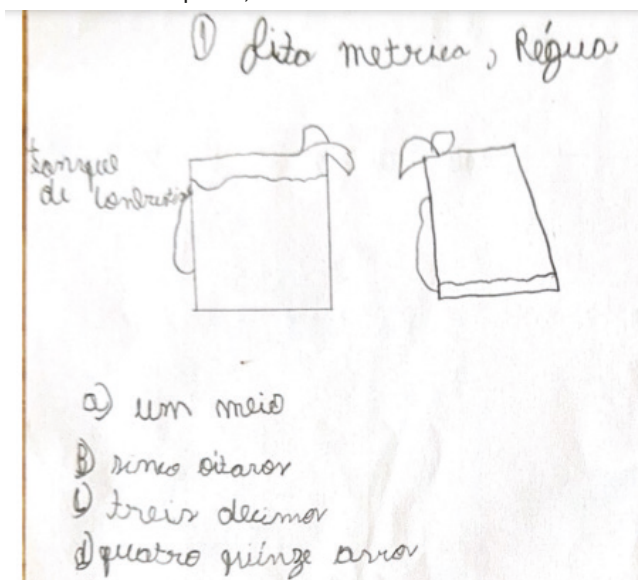 ① fita metrica, Régua
tanque
de combustivel
a) um meio
B) sinco oitavos
C) treis decimos
d) quatro quinze avos